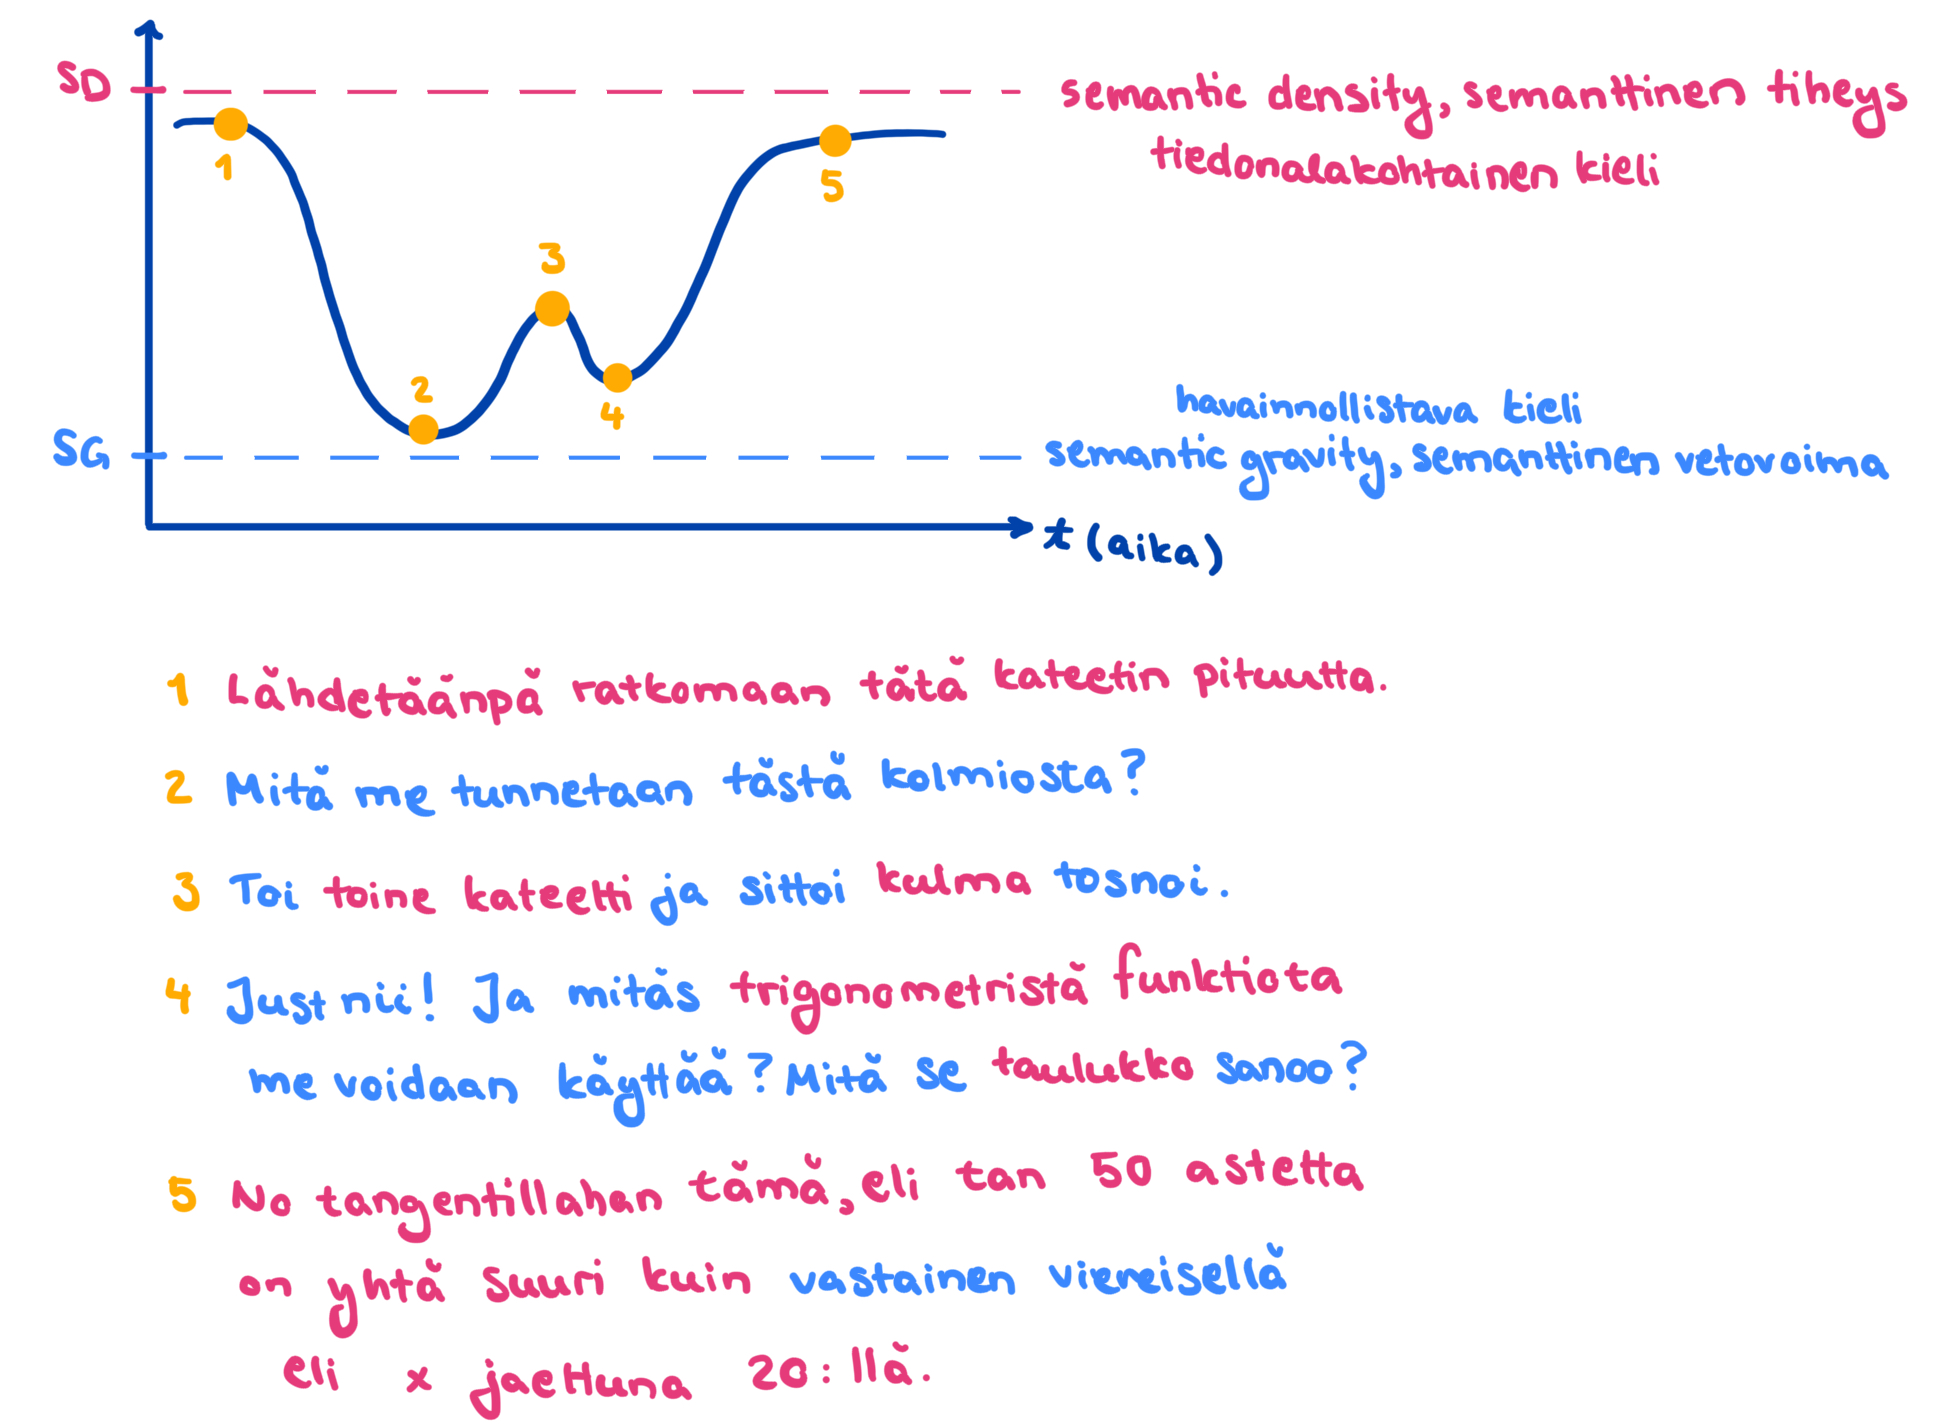 SD
semantic density, semanttinen tiheys
tiedonalakohtainen kieli
1
5
3
2
4
havainnollistava kieli
SG
semantic gravity, semanttinen vetovoima
t (aika)
1 Lähdetäänpä ratkomaan tätä kateetin pituutta.
2 Mitä me tunnetaan tästä kolmiosta?
3 Toi toine kateetti ja sittoi kulma tosnoi.
4 Just nii! Ja mitäs trigonometristä funktiota
me voidaan käyttää? Mitä se taulukko sanoo?
5 No tangentillahan tämä, eli tan 50 astetta
on yhtä suuri kuin vastainen viereisellä
eli x jaettuna 20:llä.